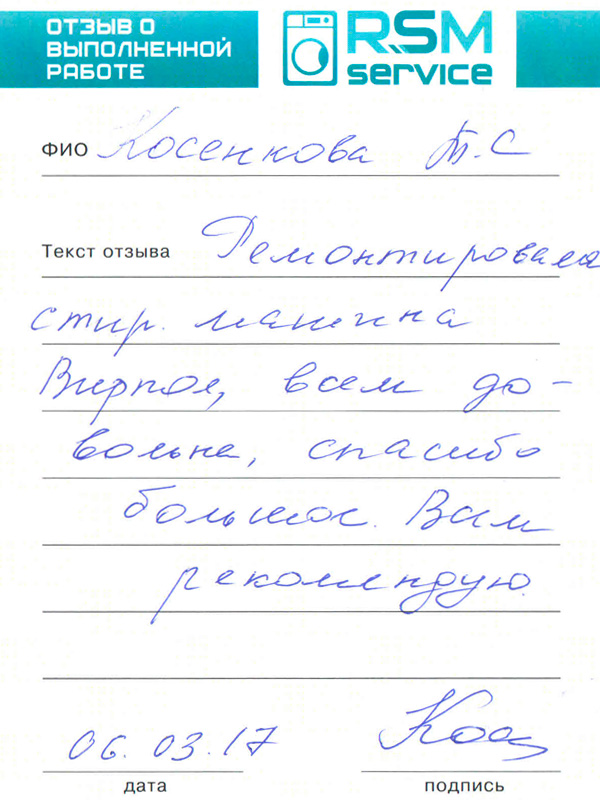 ОТЗЫВ О
ВЫПОЛНЕННОЙ
РАБОТЕ
RSM
service
ФИО Косенкова Т.С
Текст отзыва Ремонтировалась
стир. машина
Вирпол, всем до-
вольна, спасибо
большое. Вам
рекомендую.
06.03.17 Кос
дата подпись